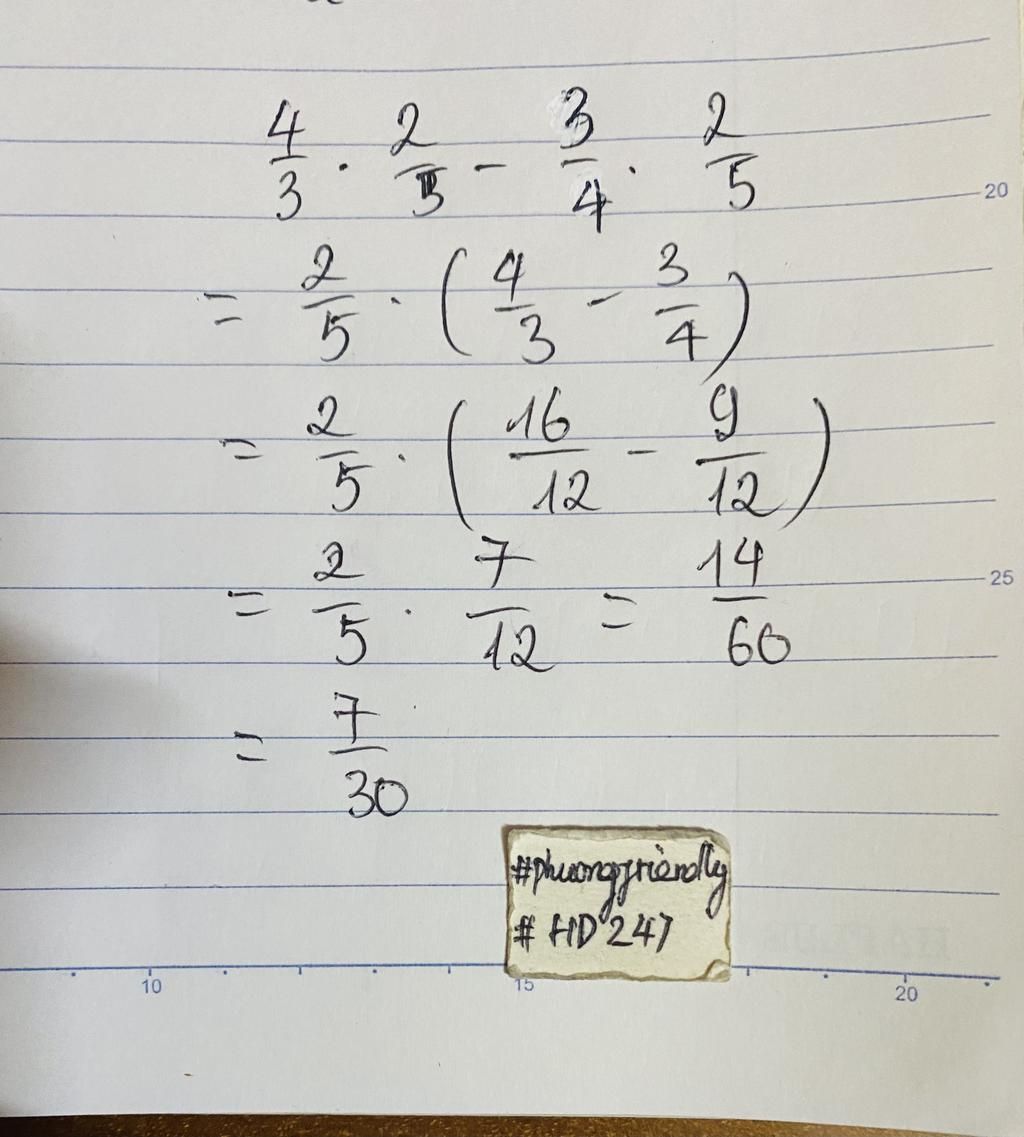 4/3 . 2/5 - 3/4 . 2/5
20
= 2/5 . (4/3 - 3/4)
= 2/5 . (16/12 - 9/12)
= 2/5 . 7/12 = 14/60
25
= 7/30
#phuongfriendly
# HD247
10 15 20